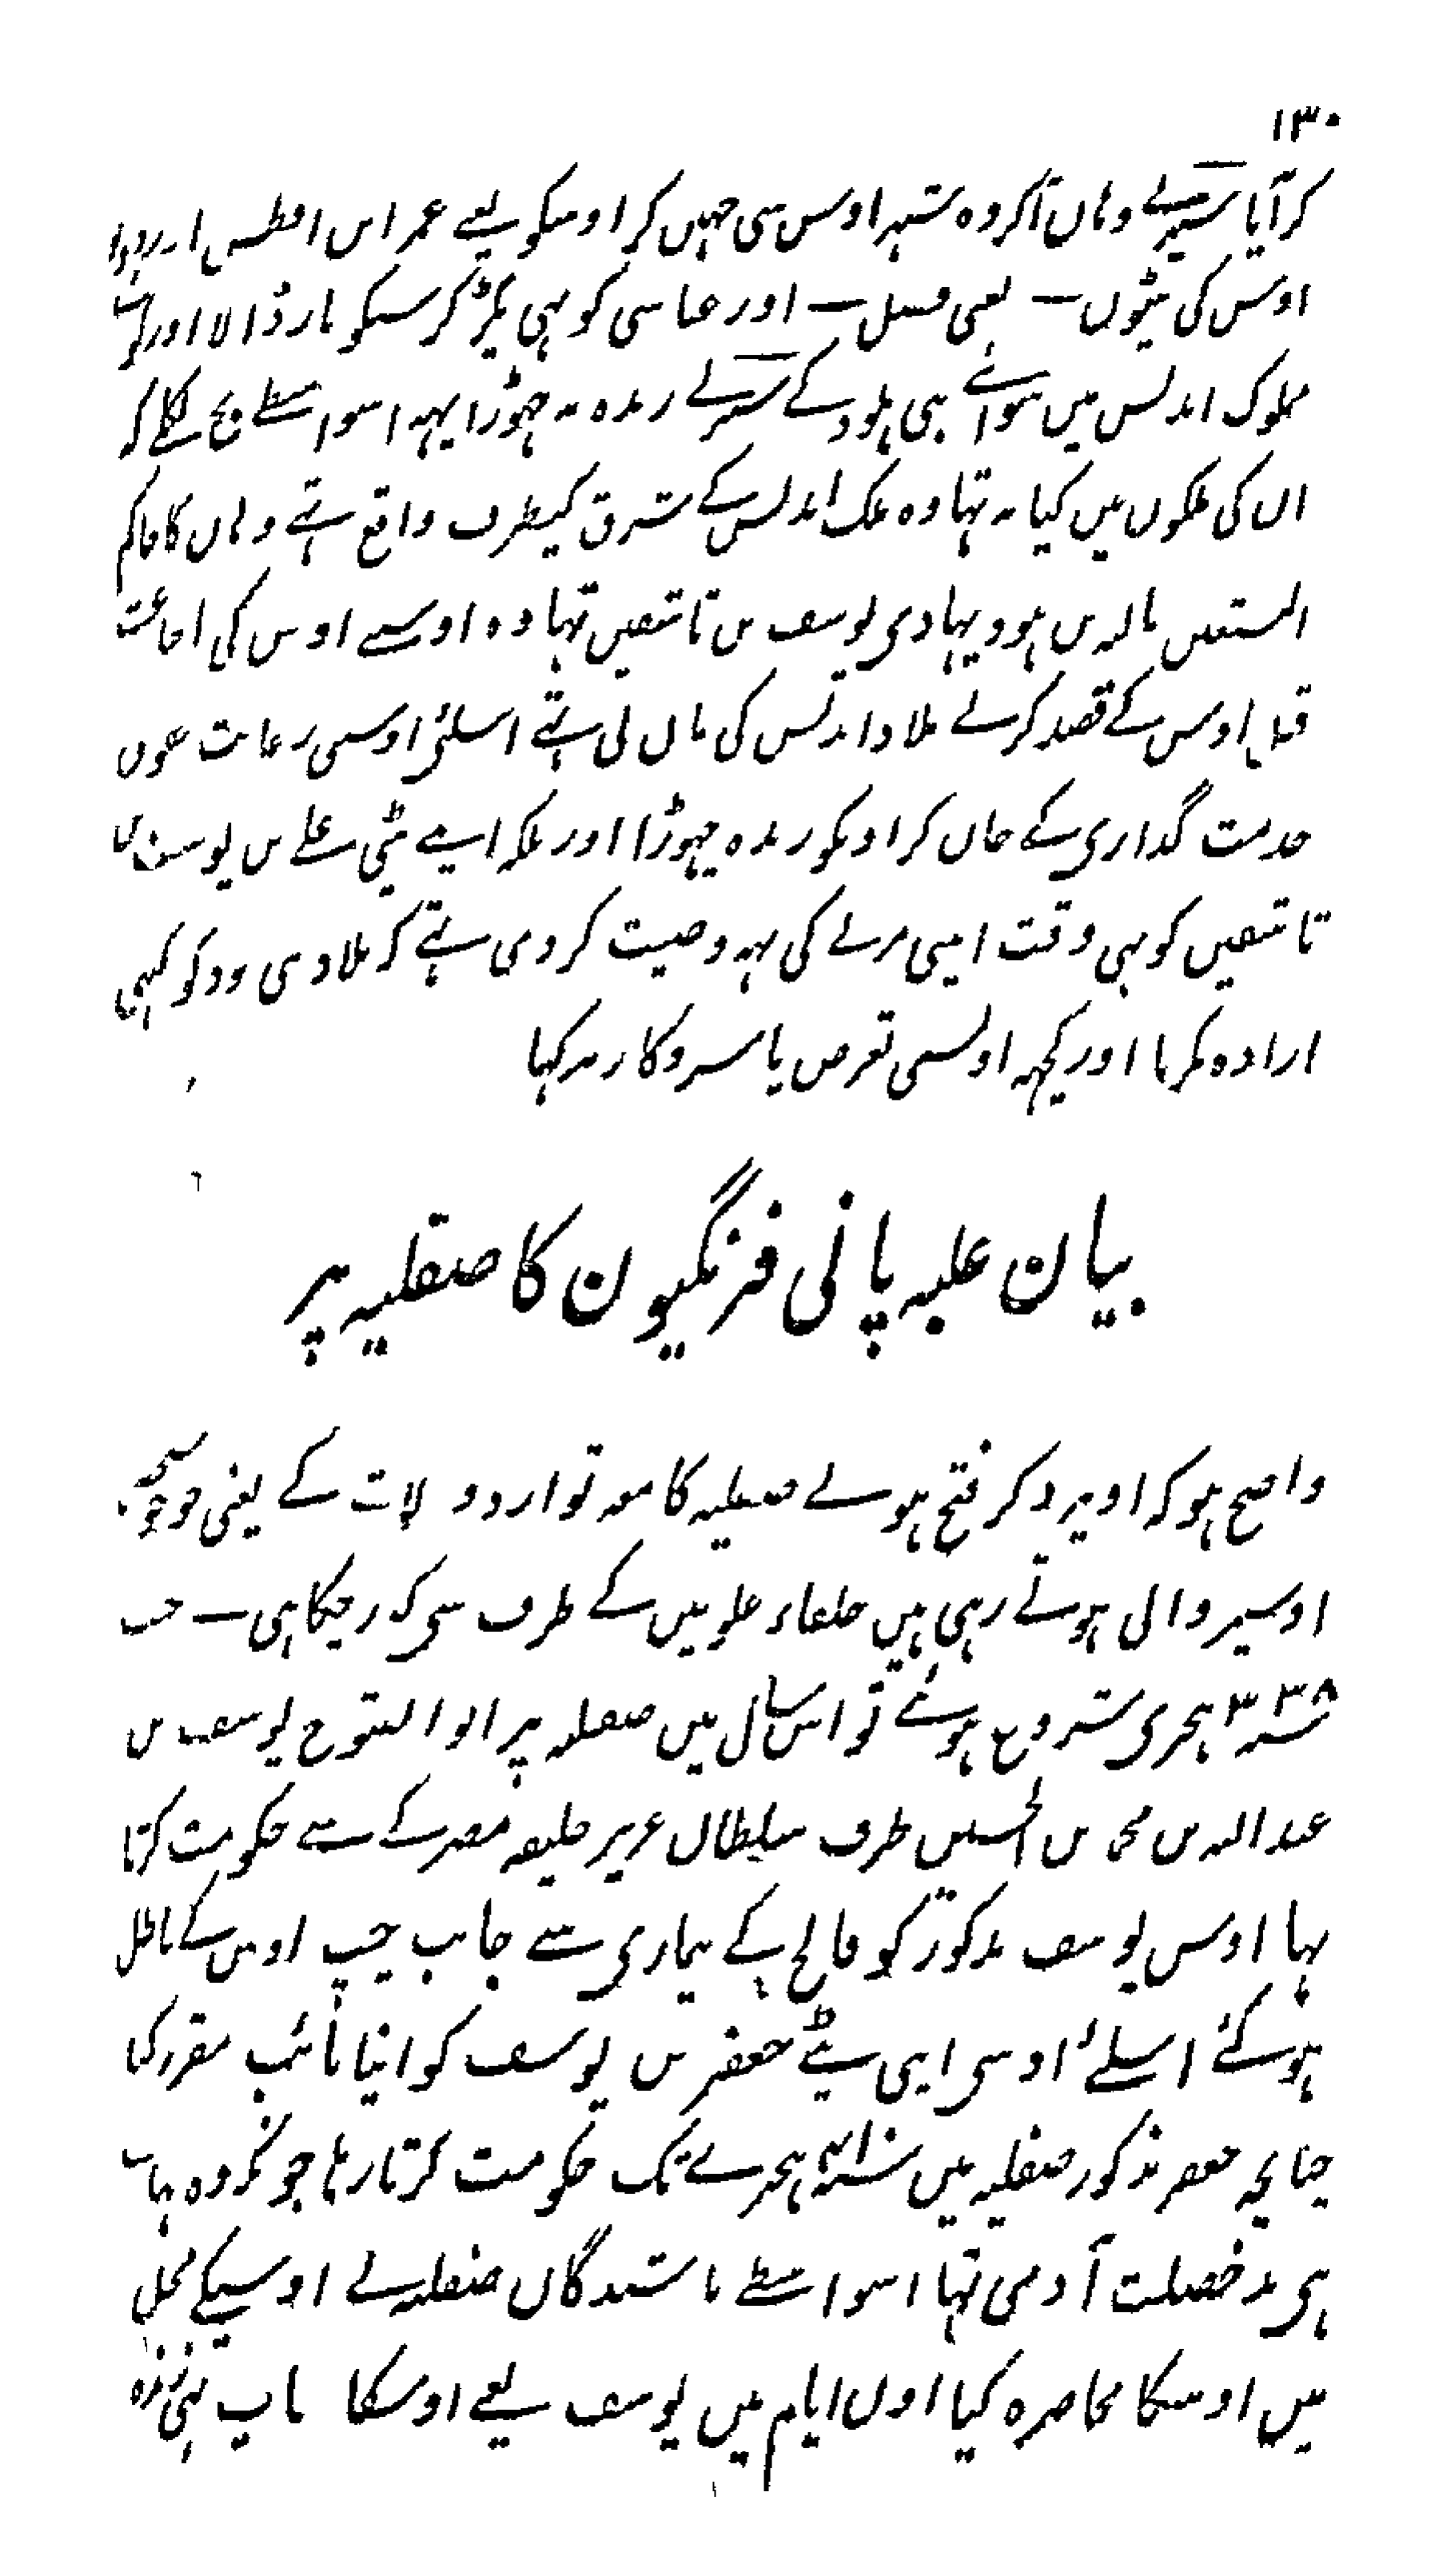 ۱۳۰
کر آیا سیر نے وہاں آکر وہ شہر اوس سی چہین کر اوسکو یعنے عمر ابن افطس اور
اوس کی بیٹوں — یعنی فضل — اور عباسی کو بہی پکڑ کر سبکو مار ڈالا اور
ملوک اندلس میں سوائے بنی ہود کے سیر نے زندہ نہ چہوڑا یہہ اسواسطے بچ نکلے کہ
ان کی ملکوں میں کیا نہ تہا وہ ملک اندلس کے شرق کیطرف واقع تہے وہاں کا حاکم
المستعین باللہ بن ہود یہادی یوسف بن تاشفین تہا وہ اوسے اوس کی اطاعت
قبل اوس کے قصد کرنے بلاد اندلس کی مان لی تہے اسلئے اوسی رعایت حقوق
خدمت گذاری کے جان کر اونکو زندہ چہوڑا اور بلکہ اپنے بیٹی علے بن یوسف بن
تاشفین کو بہی وقت اپنی مرنے کی یہہ وصیت کر دی تہے کہ بلاد بنی ہود کو کبہی
ارادہ نکرنا اور کچہہ اونسی تعرض یا سروکار نرکہنا
بیان غلبہ پانی فرنگیون کا صقلیہ پر
واضح ہو کہ اوپر ذکر فتح ہونے صقلیہ کا معہ توارد ولات کے یعنی جو جو
اوسپر والی ہوتے رہی ہیں خلفاء علویین کے طرف سی گذر چکا ہی — جب
۳۳۸ سنہ ہجری شروع ہوئے تو اس سال میں صقلیہ پر ابو الفتوح یوسف بن
عبد اللہ بن محمد بن الحسین طرف سلطان عزیز خلیفہ مصر کے سے حکومت کرتا
تہا اوس یوسف مذکور کو فالج کے بیماری سے جانب چپ اوس کے باطل
ہو گئے اسلئے اوسی اپنی بیٹے جعفر بن یوسف کو اپنا نائب مقرر کیا
چنانچہ جعفر مذکور صقلیہ میں سنہ ہجرے تک حکومت کرتا رہا چونکہ وہ نہایت
ہی بد خصلت آدمی تہا اسواسطے باشندگان صقلیہ نے اوسیکے محل
میں اوسکا محاصرہ کیا اون ایام میں یوسف یعنے اوسکا باپ بہی زندہ